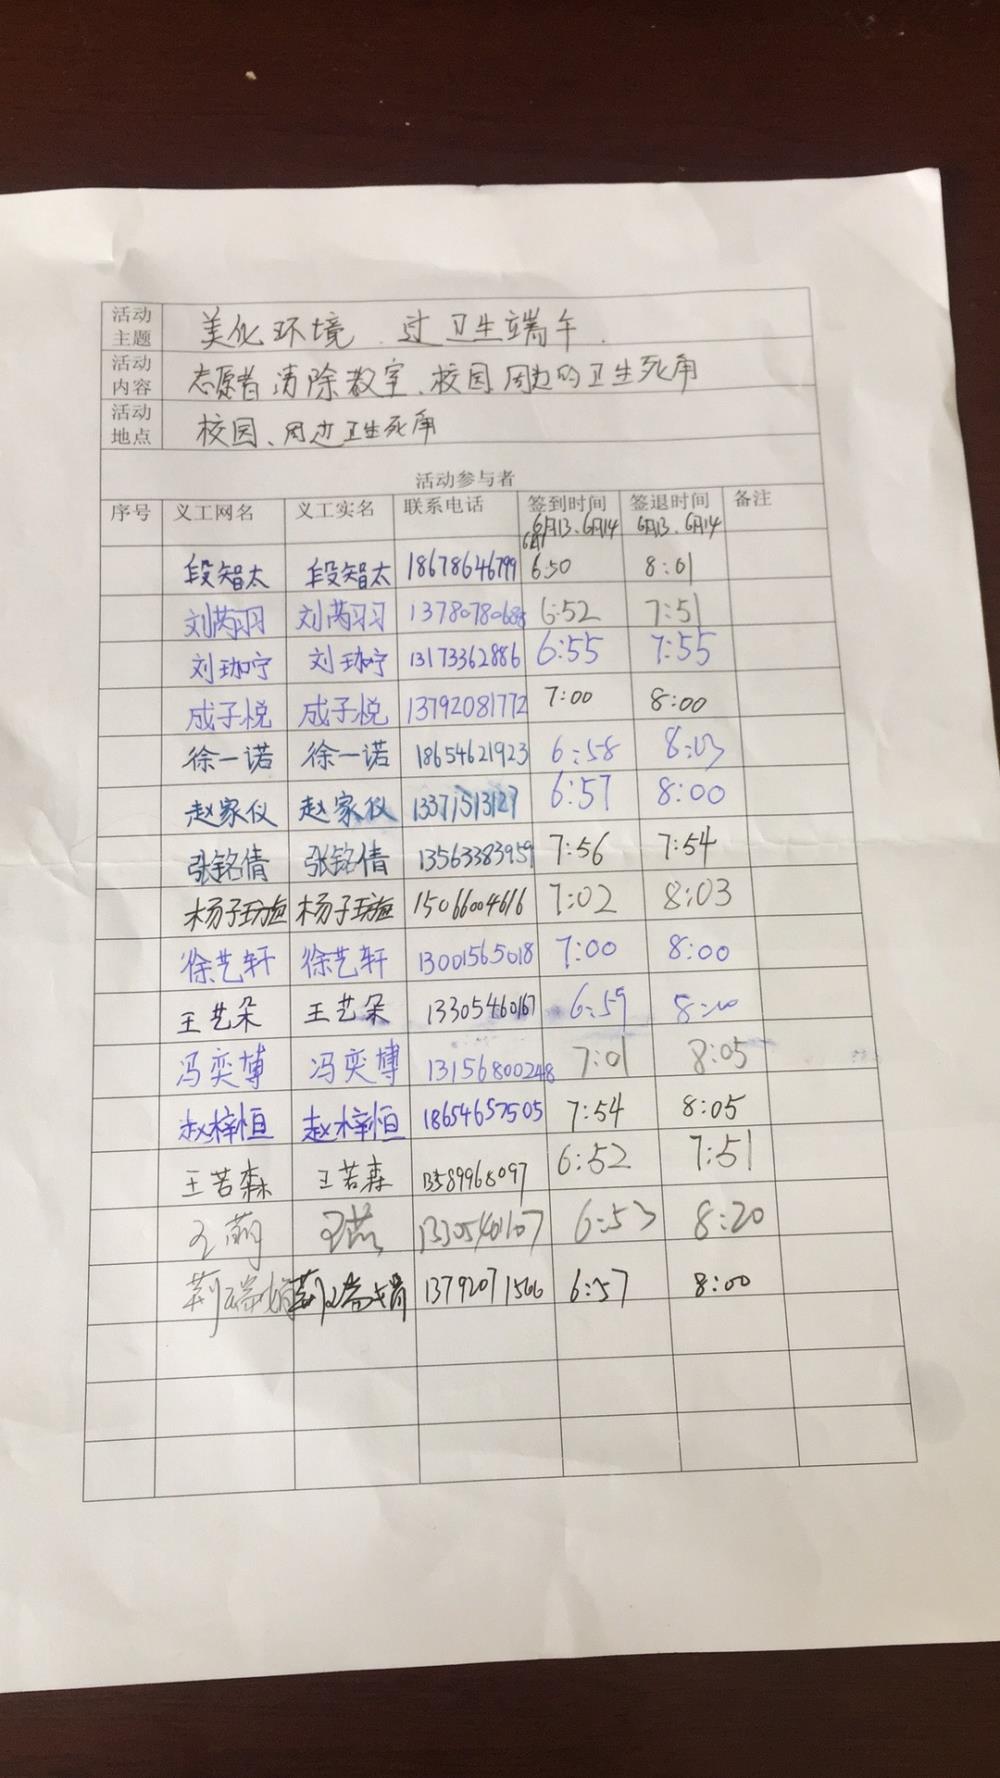 活动主题 美化环境、过卫生端午.
活动内容 志愿者清除教室、校园周边的卫生死角
活动地点 校园、周边卫生死角
活动参与者
序号 义工网名 义工实名 联系电话 签到时间 签退时间 备注
6月13、6月14 6月13、6月14
段智太 段智太 18678646799 6:50 8:01
刘芮羽 刘芮羽 6:52 7:51
刘珈宁 刘珈宁 13173362886 6:55 7:55
成子悦 成子悦 13792081772 7:00 8:00
徐一诺 徐一诺 18654621923 6:58 8:03
赵家仪 赵家仪 13371513127 6:57 8:00
张铭倩 张铭倩 13563383959 7:56 7:54
杨子 杨子 15066004616 7:02 8:03
徐艺轩 徐艺轩 13001565018 7:00 8:00
王艺朵 王艺朵 13305460167 6:59 8:00
冯奕博 冯奕博 13156800248 7:01 8:05
赵梓恒 赵梓恒 18654657505 7:54 8:05
王若森 王若森 13589968097 6:52 7:51
6:53 8:20
荆瑞婧 荆瑞婧 13792071566 6:57 8:00